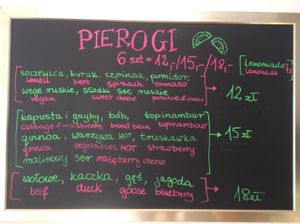 PIEROGI
6 szt = 12,-/15,-/18,-
lemoniada
lemonade
soczewica, burak, szpinak, pomidor,
lentil beet spinach tomato
wege ruskie, słodki ser, ruskie
vegan sweet cheese potatoes & cheese
12 zł
kapusta i grzyby, bób, topinambur
cabbage & mushrooms, broad bean topinambour
quinoa, warzywa HOT, truskawka
quinoa vegetables HOT strawberry
malinowy ser raspberry cheese
15 zł
wołowe, kaczka, gęś, jagoda
beef duck goose blueberry
18 zł